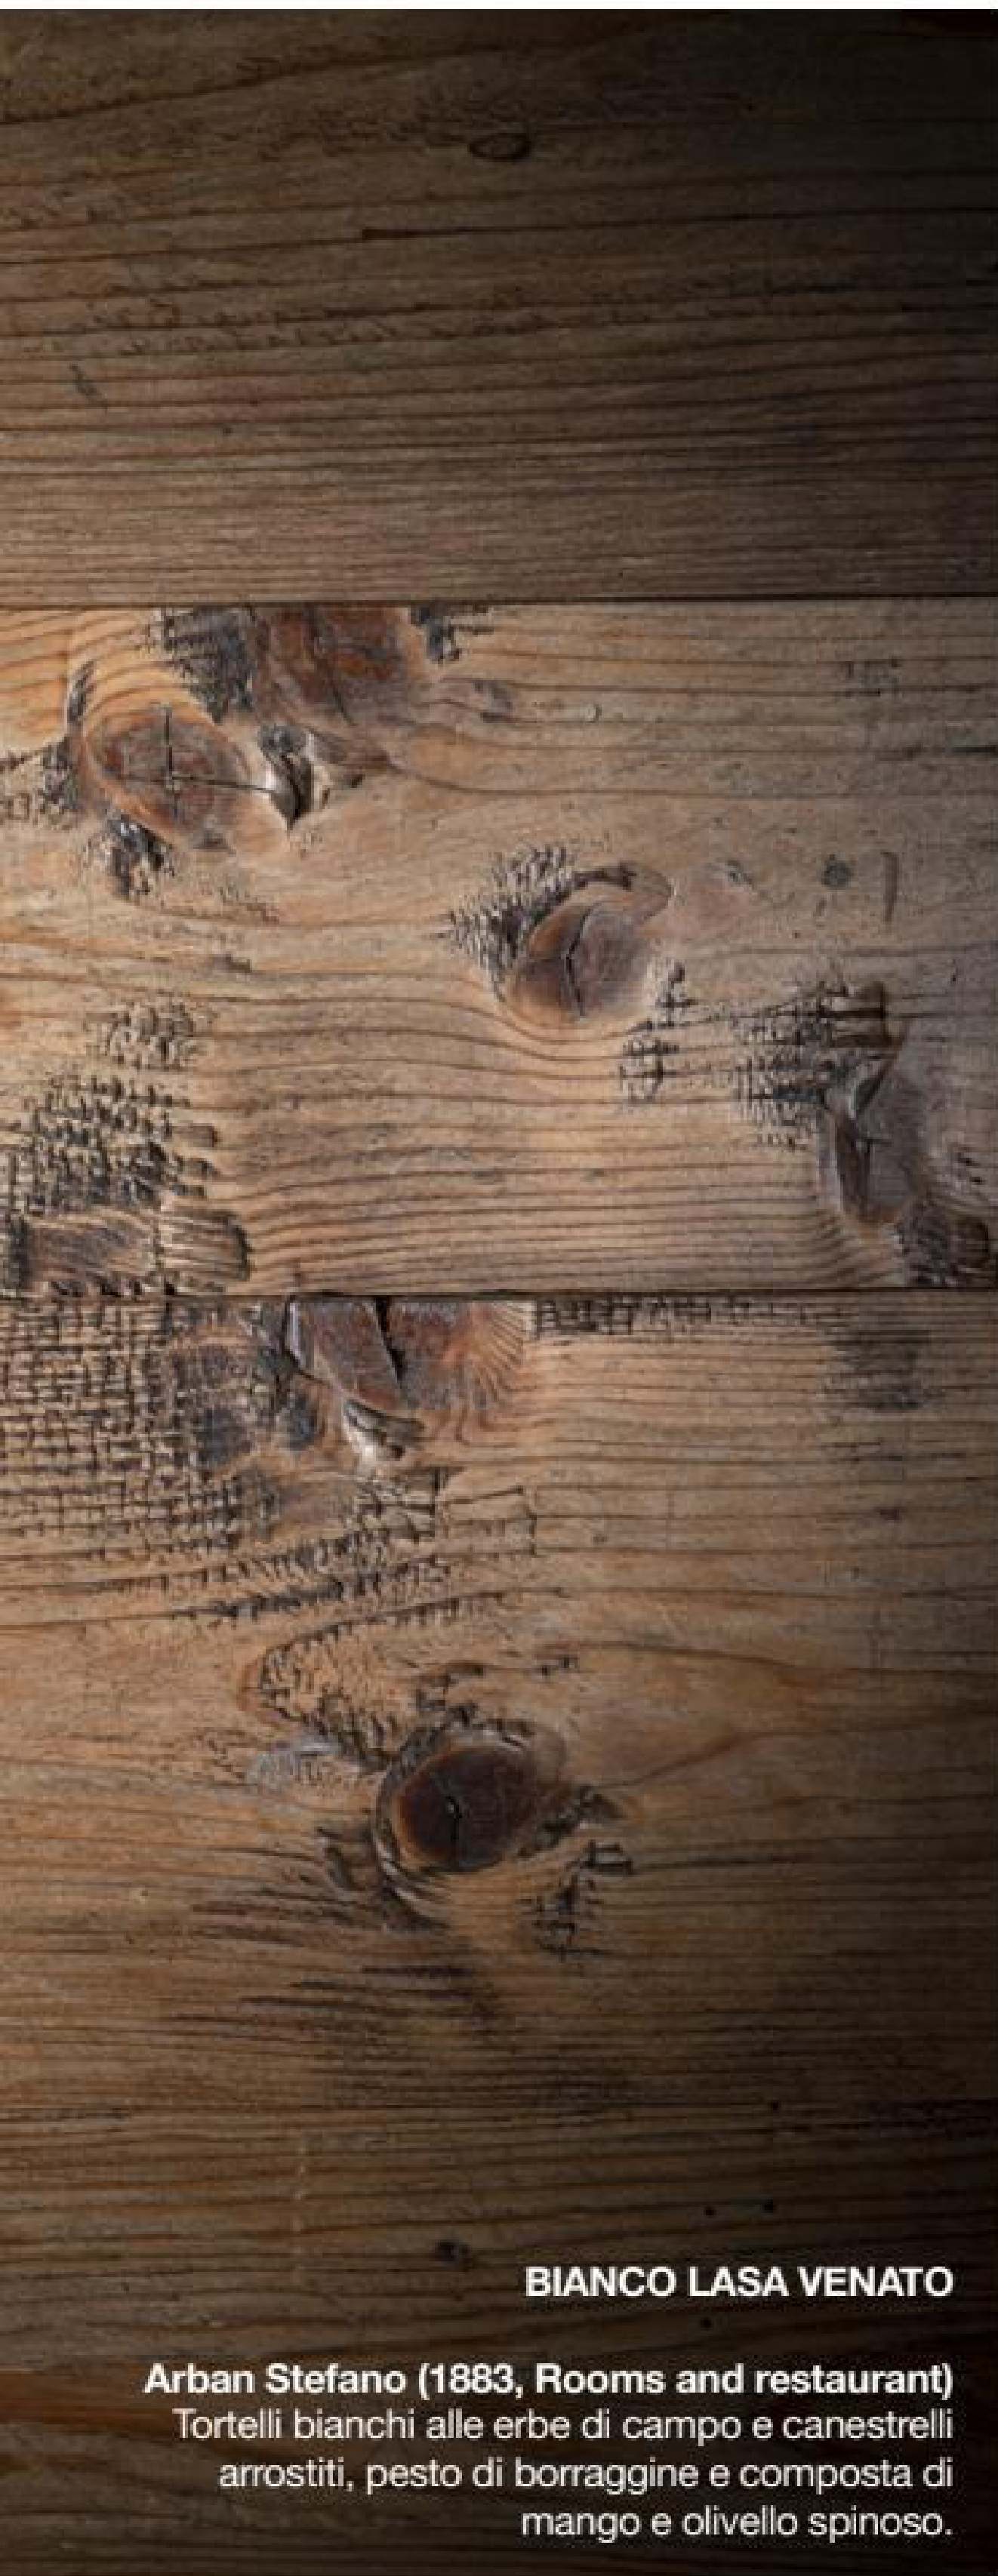 BIANCO LASA VENATO
Arban Stefano (1883, Rooms and restaurant)
Tortelli bianchi alle erbe di campo e canestrelli
arrostiti, pesto di borraggine e composta di
mango e olivello spinoso.